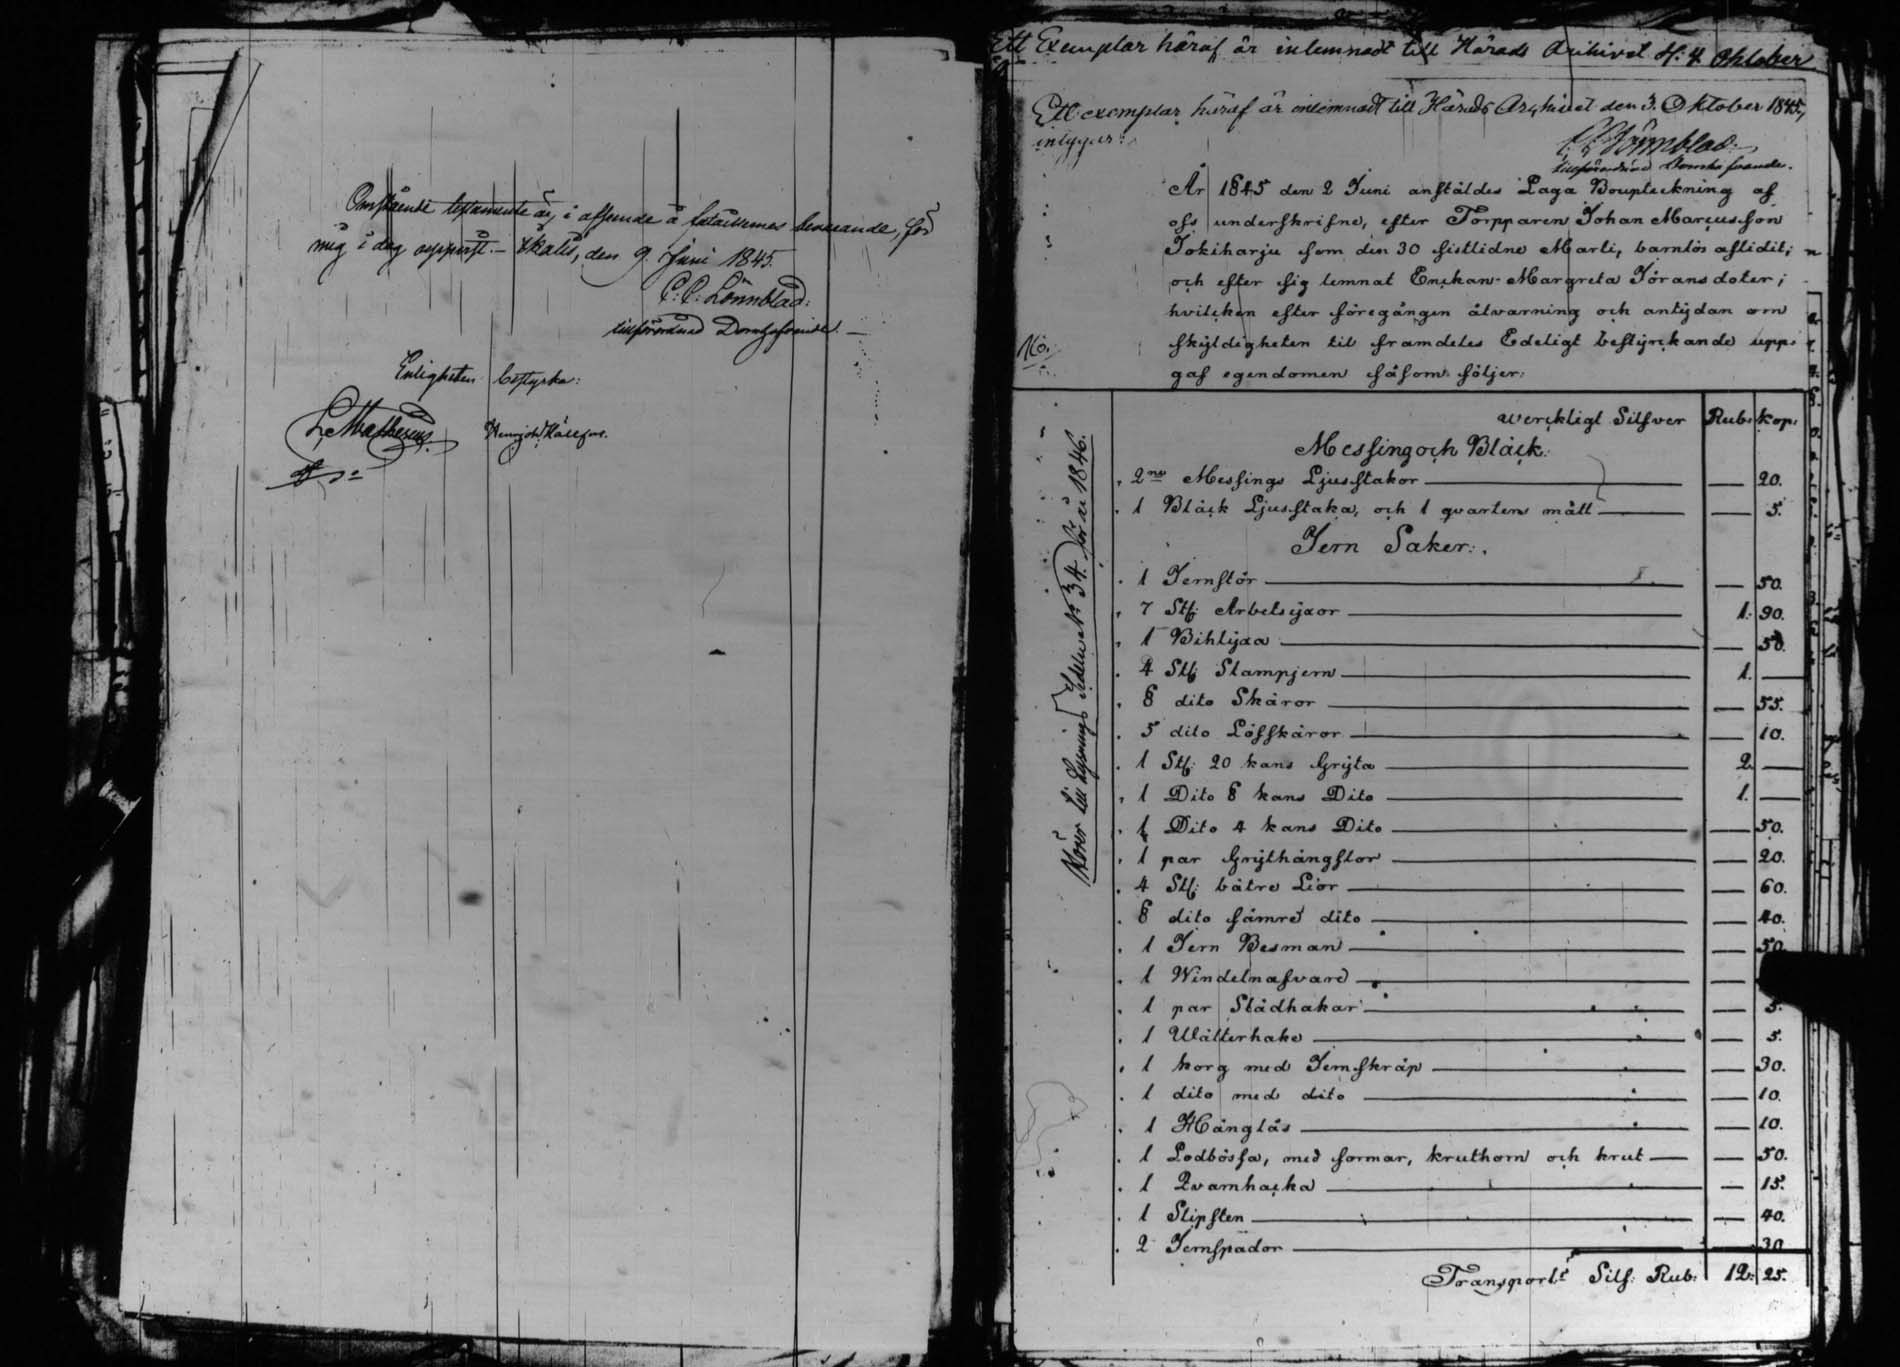 Omstående testamente är, i afseende å fataliernes bevarande, för
mig i dag uppvist. – Ikalis, den 9 Juni 1845.
C: C: Lönnblad:
tillförordnad Domhafvande. –
Enligheten bestyrka:
Ett Exemplar häraf är inlemnadt till Härads Arkivet d: 4 Oktober
Ett exemplar häraf är inlemnadt till Härads Archivet den 3. Oktober 1845,
intygar:
C: C: Lönnblad:
tillförordnad Domhafvande.
År 1845 den 2 Juni anstäldes Laga Boupteckning af
ofs underskrifne, efter Torpparen Johan Marcusson
Jokiharju som den 30 sistlidne Marti, barnlös aflidit;
och efter sig lemnat Enckan Margreta Jöransdoter;
hvilcken efter föregången åtvarning och antydan om
skyldigheten til framdeles Edeligt bestyrckande upp-
gaf egendomen såsom följer:
Hörer till Lysnings Ärdn No 34. för år 1846.
werckligt Silfver Rub: kop:
Messing och Bläck:
2ne Messings Ljusstakor — 20.
1 Bläck Ljusstaka, och 1 qvarters mått — 5.
Jern Saker:
1 Jernstör — 50.
7 St: Arbetsyxor 1. 90.
1 Bihlyxa — 50.
4 St: Stampjern 1. —
8 dito Skäror — 55.
5 dito Löfskäror — 10.
1 St: 20 kans Gryta 2. —
1 Dito 8 kans Dito 1. —
1 Dito 4 kans Dito — 50.
1 par Grythängslor — 20.
4 St: bätre Lior — 60.
8 dito sämre dito — 40.
1 Jern Besman — 50
1 Windelnafvare —
1 par Slädhakar — 5.
1 Wätterhake — 5.
1 korg med Jernskräp — 30.
1 dito med dito — 10.
1 Hänglås — 10.
1 Lodbössa, med formar, kruthorn och krut — 50.
1 Qvarnhacka — 15.
1 Slipsten — 40.
2 Jernspador — 30
Transport Silf: Rub: 12. 25.